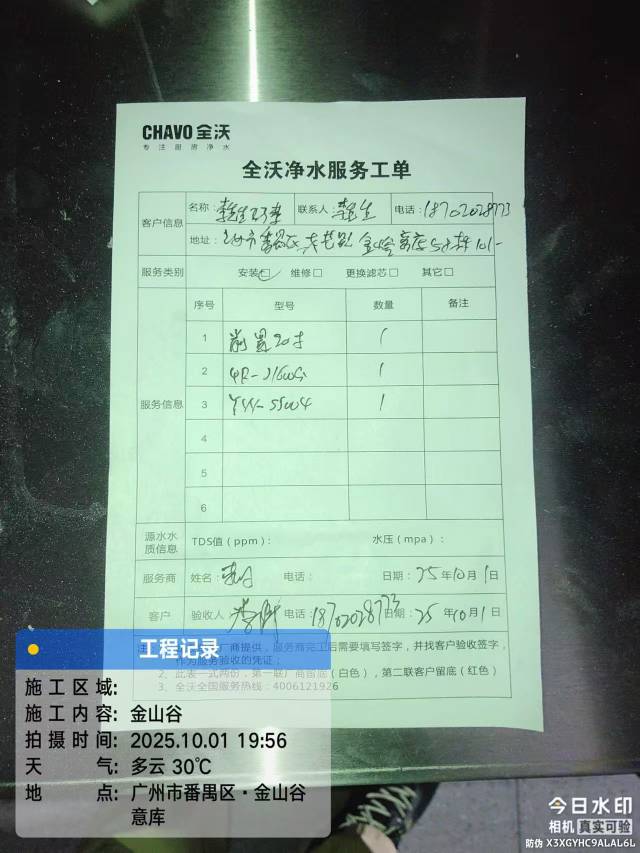 CHAVO 全沃
专注厨房净水
全沃净水服务工单
客户信息 名称: 联系人: 李先生 电话: 18702028773
地址:
服务类别 安装☑ 维修□ 更换滤芯□ 其它□
服务信息 序号 型号 数量 备注
1 前置20寸 1
2 1
3 1
4
5
6
源水水质信息 TDS值（ppm）: 水压（mpa）:
服务商 姓名: 电话: 日期: 25年10月1日
客户 验收人 电话: 18702028773 日期: 25年10月1日
厂商提供，服务商完工后需要填写签字，并找客户验收签字，
作为服务验收的凭证；
2、此表一式两份，第一联厂商留底（白色），第二联客户留底（红色）
3、全沃全国服务热线: 4006121926
工程记录
施工区域:
施工内容: 金山谷
拍摄时间: 2025.10.01 19:56
天气: 多云 30℃
地点: 广州市番禺区·金山谷
意库
今日水印
相机 真实可验
防伪 X3XGYHC9ALAL6L